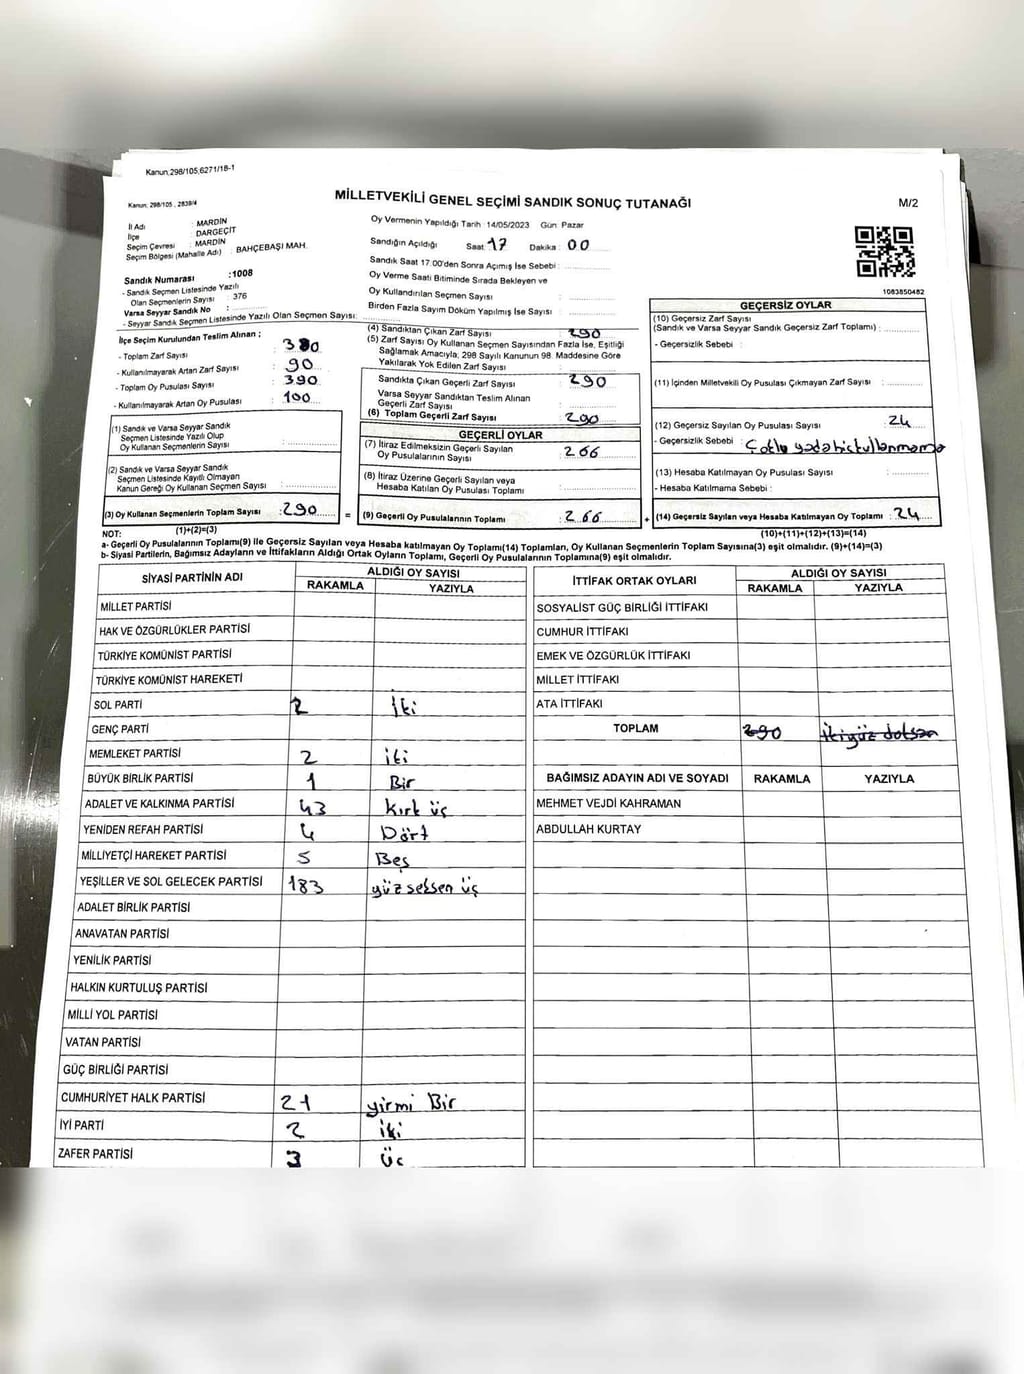 Kanun,298/105,6271/18-1
Kanun: 298/105 , 2839/4
MİLLETVEKİLİ GENEL SEÇİMİ SANDIK SONUÇ TUTANAĞI
M/2
İl Adı : MARDİN
İlçe : DARGEÇİT
Seçim Çevresi : MARDİN
Seçim Bölgesi (Mahalle Adı) : BAHÇEBAŞI MAH.
Sandık Numarası :1008
- Sandık Seçmen Listesinde Yazılı
Olan Seçmenlerin Sayısı : 376
Varsa Seyyar Sandık No :
- Seyyar Sandık Seçmen Listesinde Yazılı Olan Seçmen Sayısı:
Oy Vermenin Yapıldığı Tarih :14/05/2023 Gün: Pazar
Sandığın Açıldığı Saat: 17 Dakika: 00
Sandık Saat 17:00'den Sonra Açımış İse Sebebi :
Oy Verme Saati Bitiminde Sırada Bekleyen ve
Oy Kullandırılan Seçmen Sayısı :
Birden Fazla Sayım Döküm Yapılmış İse Sayısı :
1083850482
İlçe Seçim Kurulundan Teslim Alınan ;
- Toplam Zarf Sayısı : 380
- Kullanılmayarak Artan Zarf Sayısı : 90
- Toplam Oy Pusulası Sayısı : 390
- Kullanılmayarak Artan Oy Pusulası : 100
(1) Sandık ve Varsa Seyyar Sandık
Seçmen Listesinde Yazılı Olup
Oy Kullanan Seçmenlerin Sayısı :
(2) Sandık ve Varsa Seyyar Sandık
Seçmen Listesinde Kayıtlı Olmayan
Kanun Gereği Oy Kullanan Seçmen Sayısı :
(3) Oy Kullanan Seçmenlerin Toplam Sayısı :290
(1)+(2)=(3)
(4) Sandıktan Çıkan Zarf Sayısı : 290
(5) Zarf Sayısı Oy Kullanan Seçmen Sayısından Fazla İse, Eşitliği
Sağlamak Amacıyla; 298 Sayılı Kanunun 98. Maddesine Göre
Yakılarak Yok Edilen Zarf Sayısı :
Sandıkta Çıkan Geçerli Zarf Sayısı : 290
Varsa Seyyar Sandıktan Teslim Alınan
Geçerli Zarf Sayısı :
(6) Toplam Geçerli Zarf Sayısı : 290
GEÇERLİ OYLAR
(7) İtiraz Edilmeksizin Geçerli Sayılan
Oy Pusulalarının Sayısı : 266
(8) İtiraz Üzerine Geçerli Sayılan veya
Hesaba Katılan Oy Pusulası Toplamı :
= (9) Geçerli Oy Pusulalarının Toplamı : 266
GEÇERSİZ OYLAR
(10) Geçersiz Zarf Sayısı
(Sandık ve Varsa Seyyar Sandık Geçersiz Zarf Toplamı) :
- Geçersizlik Sebebi :
(11) İçinden Milletvekili Oy Pusulası Çıkmayan Zarf Sayısı :
(12) Geçersiz Sayılan Oy Pusulası Sayısı : 24
- Geçersizlik Sebebi :
(13) Hesaba Katılmayan Oy Pusulası Sayısı :
- Hesaba Katılmama Sebebi :
+ (14) Geçersiz Sayılan veya Hesaba Katılmayan Oy Toplamı : 24
(10)+(11)+(12)+(13)=(14)
NOT:
a- Geçerli Oy Pusulalarının Toplamı(9) ile Geçersiz Sayılan veya Hesaba katılmayan Oy Toplamı(14) Toplamları, Oy Kullanan Seçmenlerin Toplam Sayısına(3) eşit olmalıdır. (9)+(14)=(3)
b- Siyasi Partilerin, Bağımsız Adayların ve İttifakların Aldığı Ortak Oyların Toplamı, Geçerli Oy Pusulalarının Toplamına(9) eşit olmalıdır.
SİYASİ PARTİNİN ADI ALDIĞI OY SAYISI
RAKAMLA YAZIYLA
MİLLET PARTİSİ
HAK VE ÖZGÜRLÜKLER PARTİSİ
TÜRKİYE KOMÜNİST PARTİSİ
TÜRKİYE KOMÜNİST HAREKETİ
SOL PARTİ 2 iki
GENÇ PARTİ
MEMLEKET PARTİSİ 2 iki
BÜYÜK BİRLİK PARTİSİ 1 Bir
ADALET VE KALKINMA PARTİSİ 43 Kırk üç
YENİDEN REFAH PARTİSİ 4 Dört
MİLLİYETÇİ HAREKET PARTİSİ 5 Beş
YEŞİLLER VE SOL GELECEK PARTİSİ 183 yüz seksen üç
ADALET BİRLİK PARTİSİ
ANAVATAN PARTİSİ
YENİLİK PARTİSİ
HALKIN KURTULUŞ PARTİSİ
MİLLİ YOL PARTİSİ
VATAN PARTİSİ
GÜÇ BİRLİĞİ PARTİSİ
CUMHURİYET HALK PARTİSİ 21 yirmi Bir
İYİ PARTİ 2 iki
ZAFER PARTİSİ 3 üç
İTTİFAK ORTAK OYLARI ALDIĞI OY SAYISI
RAKAMLA YAZIYLA
SOSYALİST GÜÇ BİRLİĞİ İTTİFAKI
CUMHUR İTTİFAKI
EMEK VE ÖZGÜRLÜK İTTİFAKI
MİLLET İTTİFAKI
ATA İTTİFAKI
TOPLAM 290 ikiyüz doksan
BAĞIMSIZ ADAYIN ADI VE SOYADI RAKAMLA YAZIYLA
MEHMET VEJDİ KAHRAMAN
ABDULLAH KURTAY